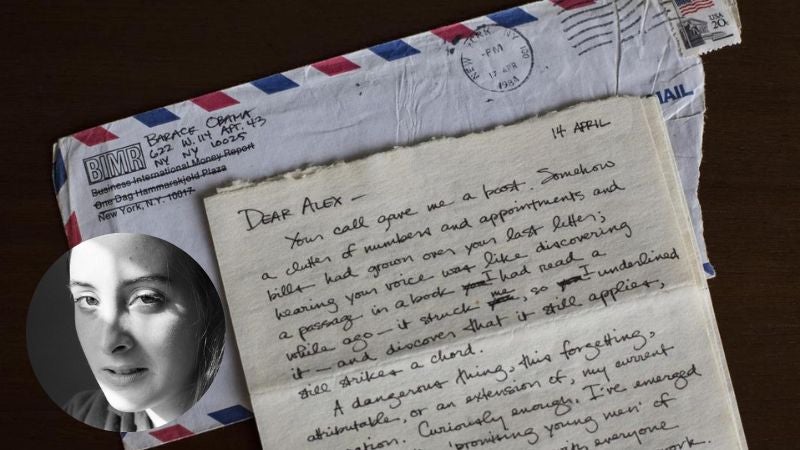 BARACK OBAMA
622 W. 114 APT. 43
NY NY 10025
BIMR
Business International Money Report
One Dag Hammarskjold Plaza
New York, N.Y. 10017
NEW YORK, NY
PM
17 APR
1984
100
USA
20c
MAIL
14 APRIL
DEAR ALEX —
Your call gave me a boost. Somehow
a clutter of numbers and appointments and
bills had grown over your last letter;
hearing your voice was like discovering
a passage in a book I had read a
while ago — it struck me, so I underlined
it — and discover that it still applies,
still strikes a chord.
A dangerous thing, this forgetting,
attributable, or an extension of, my current
Curiously enough, I've emerged
'promising young men' of
with everyone
work.